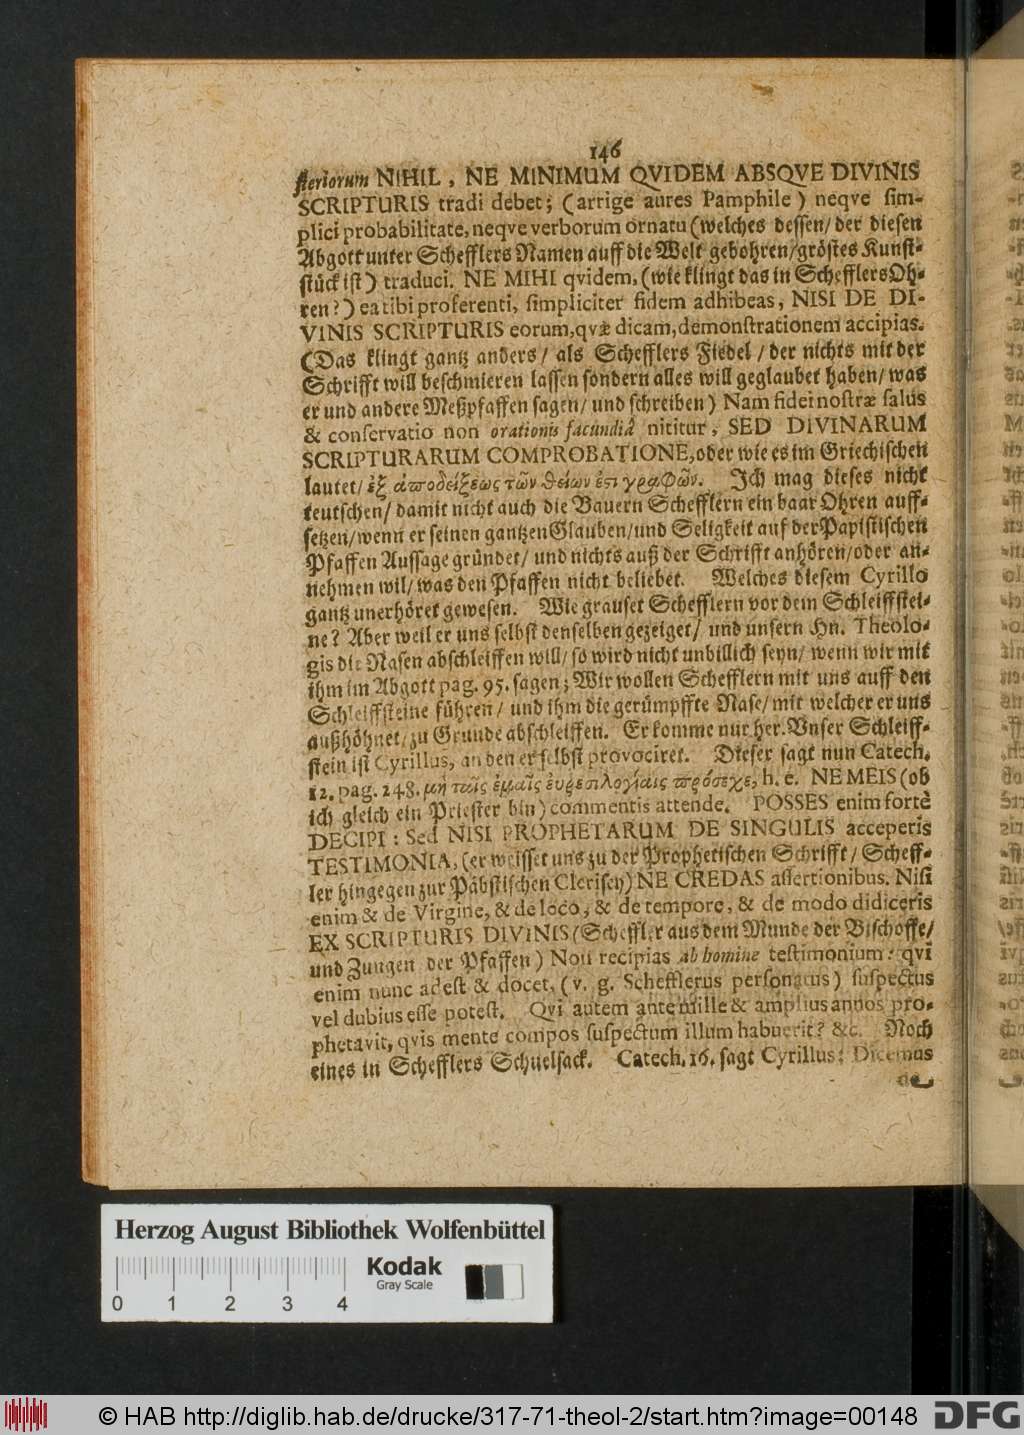 146
steriorum NIHIL, NE MINIMUM QVIDEM ABSQVE DIVINIS
SCRIPTURIS tradi debet; (arrige aures Pamphile) neqve sim-
plici probabilitate, neqve verborum ornatu (welches dessen/ der diesen
Abgott unter Schefflers Namen auff die Welt gebohren/ gröstes Kunst-
stück ist) traduci. NE MIHI qvidem, (wie klingt das in Schefflers Oh-
ren?) ea tibi proferenti, simpliciter fidem adhibeas, NISI DE DI-
VINIS SCRIPTURIS eorum, qvæ dicam, demonstrationem accipias.
(Das klingt gantz anders/ als Schefflers Fiedel/ der nichts mit der
Schrifft will beschmieren lassen sondern alles will geglaubet haben/ was
er und andere Meßpfaffen sagen/ und schreiben) Nam fidei nostræ salus
& conservatio non orationis facundiâ nititur, SED DIVINARUM
SCRIPTURARUM COMPROBATIONE, oder wie es im Griechischen
lautet/ ἐξ ἀποδείξεως τῶν θείων ἐςι γραφῶν. Ich mag dieses nicht
teutschen/ damit nicht auch die Bauern Schefflern ein baar Ohren auff-
setzen/ wenn er seinen gantzen Glauben/ und Seligkeit auf der Papistischen
Pfaffen Aussage gründet/ und nichts auß der Schrifft anhören/ oder an-
nehmen wil/ was den Pfaffen nicht beliebet. Welches diesem Cyrillo
gantz unerhöret gewesen. Wie grauset Schefflern vor dem Schleiffstei-
ne? Aber weil er uns selbst denselben gezeiget/ und unsern Hn. Theolo-
gis die Nasen abschleiffen will/ so wird nicht unbillich seyn/ wenn wir mit
ihm im Abgott pag. 95. sagen; Wir wollen Schefflern mit uns auff den
Schleiffsteine führen/ und ihm die gerümpffte Nase/ mit welcher er uns
außhöhnet/ zu Grunde abschleiffen. Er komme nur her. Unser Schleiff-
stein ist Cyrillus, an den er selbst provociret. Dieser sagt nun Catech.
12. pag. 248. μὴ ταῖς ἐμαῖς εὑρεσιλογίαις πρόσεχε, h. e. NE MEIS (ob
ich gleich ein Priester bin) commentis attende. POSSES enim fortè
DECIPI: Sed NISI PROPHETARUM DE SINGULIS acceperis
TESTIMONIA, (er weisset uns zu der Prophetischen Schrifft/ Scheff-
ler hingegen zur Päbstischen Clerisey) NE CREDAS assertionibus. Nisi
enim & de Virgine, & de loco, & de tempore, & de modo didiceris
EX SCRIPTURIS DIVINIS (Scheffler aus dem Munde der Bischoffe/
und Zungen der Pfaffen) Non recipias ab homine testimonium: qvi
enim nunc adest & docet, (v. g. Schefflerus personatus) suspectus
vel dubius esse potest. Qvi autem ante mille & amplius annos pro-
phetavit, qvis mente compos suspectum illum habuerit? &c. Noch
eines in Schefflers Schuelsack. Catech. 16. sagt Cyrillus: Dicemus
de
Herzog August Bibliothek Wolfenbüttel
Kodak
Gray Scale
0 1 2 3 4
© HAB http://diglib.hab.de/drucke/317-71-theol-2/start.htm?image=00148
DFG